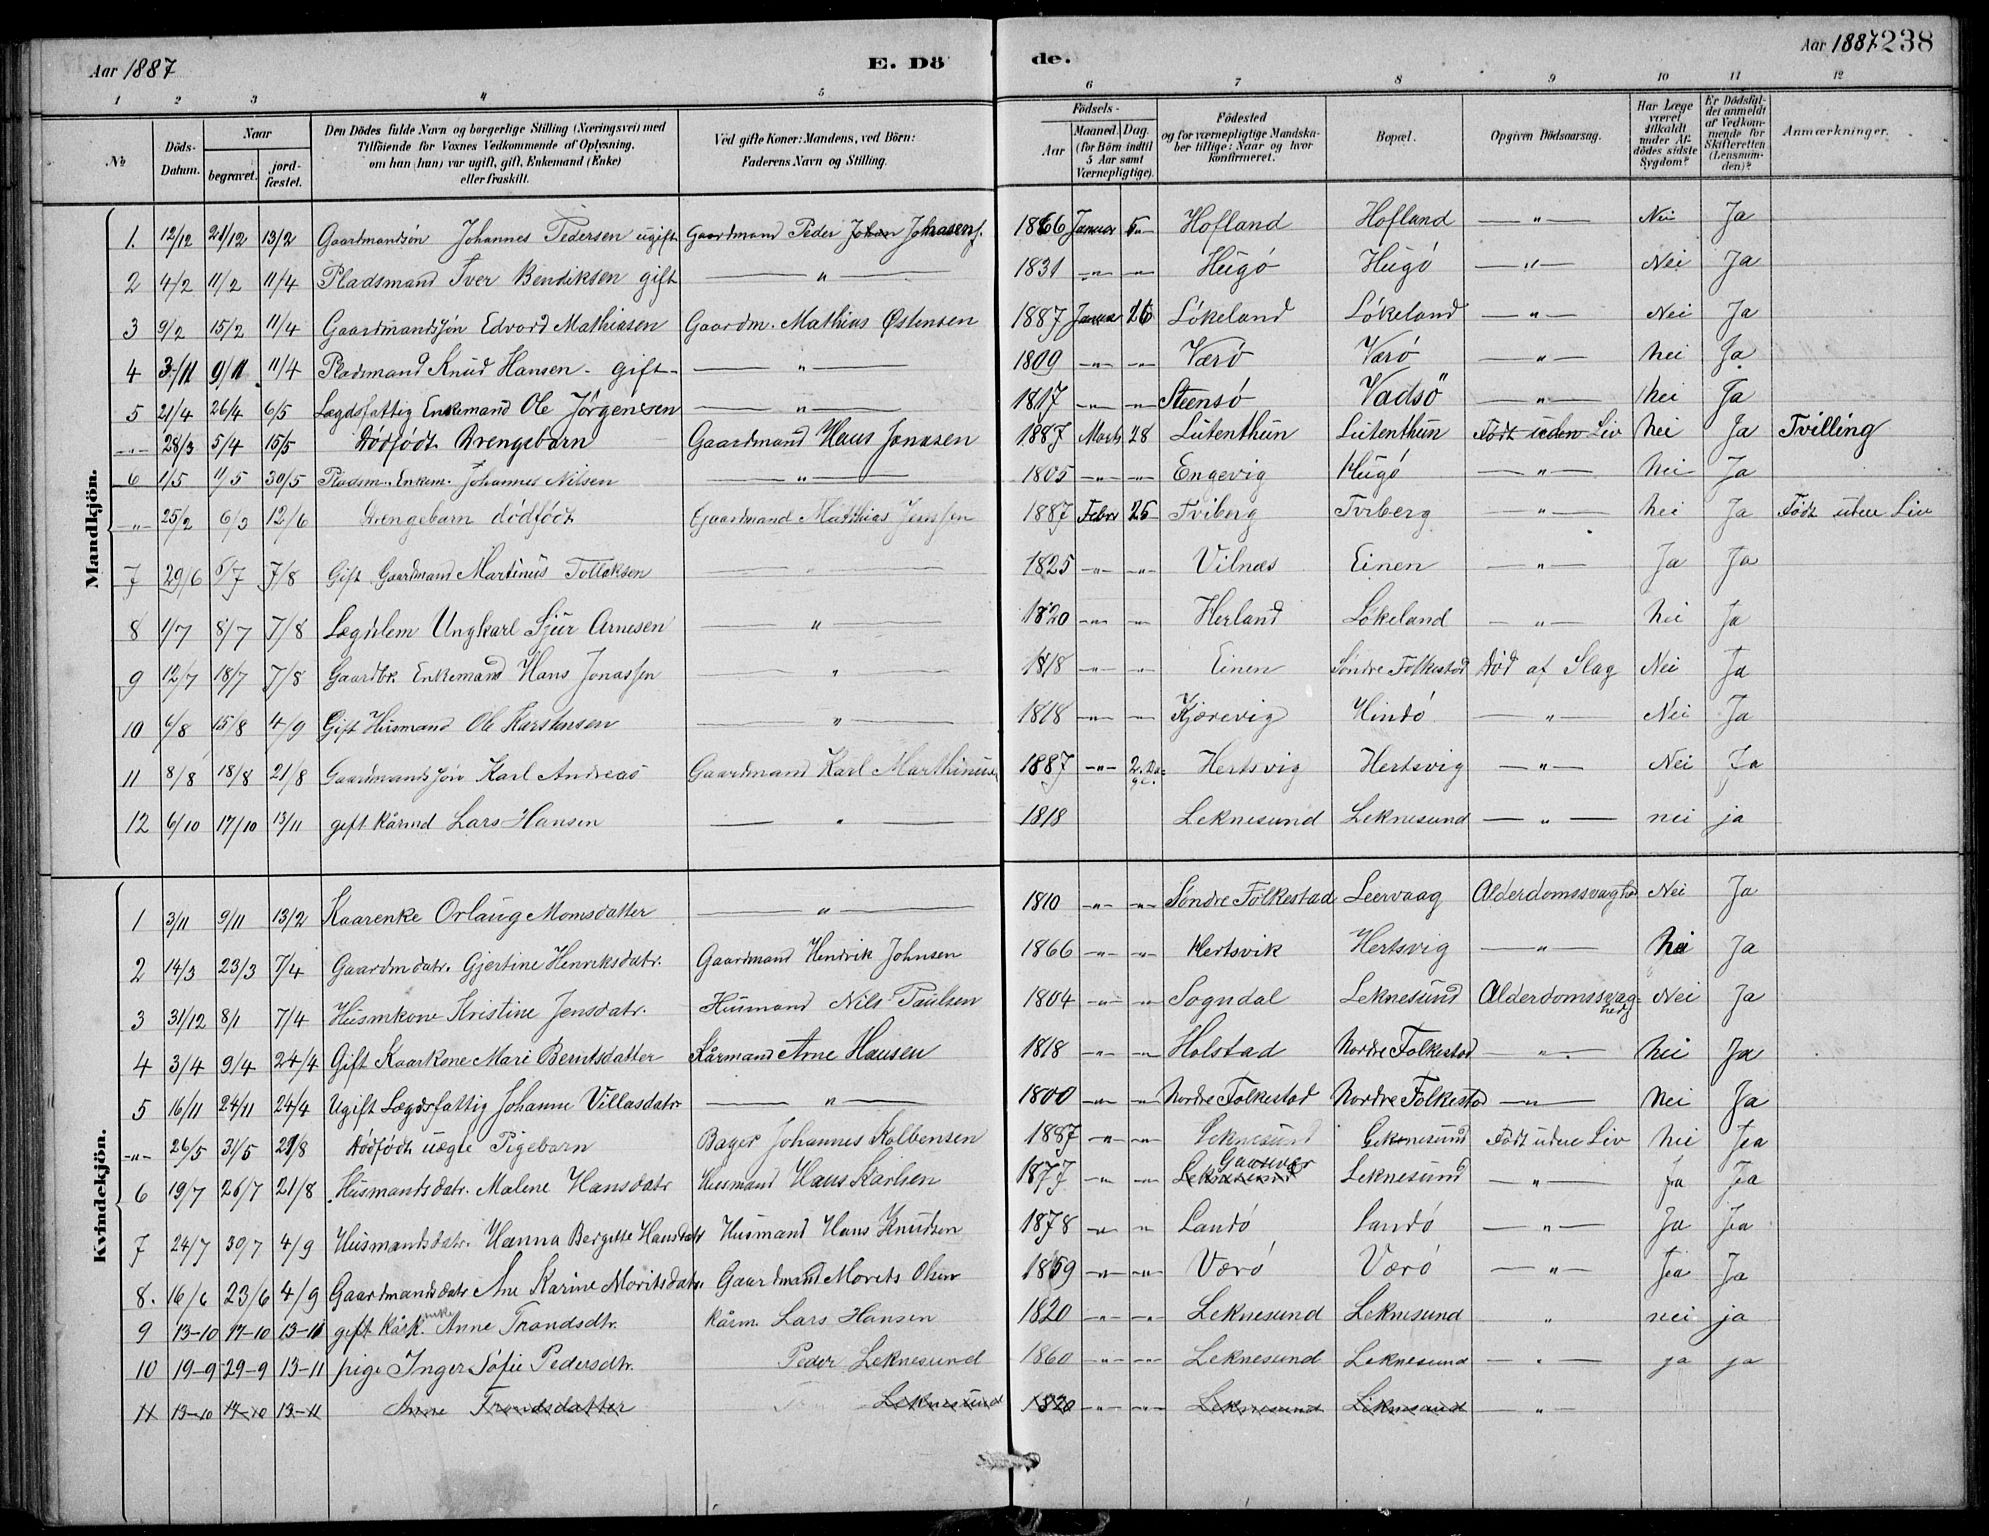 Aar 1887
E. Dö
de.
Aar 1887
238
1 2 3 4 5 6 7 8 9 10 11 12
№
Döds-Datum.
Naar begravet. jordfæstet.
Den Dödes fulde Navn og borgerlige Stilling (Næringsvei) med Tilföiende for Voxnes Vedkommende af Oplysning, om han (hun) var ugift, gift, Enkemand (Enke) eller fraskilt.
Ved gifte Koner: Mandens, ved Börn: Faderens Navn og Stilling.
Födsels-
Aar
Maaned. Dag. (for Börn indtil 5 Aar samt Værnepligtige).
Födested og for værnepligtige Mandskaber tillige: Naar og hvor Konfirmeret.
Bopæl.
Opgiven Dödsaarsag.
Har Læge været tilkaldt under Afdödes sidste Sygdom?
Er Dödsfaldet anmeldt af Vedkommende for Skifteretten (Lensmanden)?
Anmærkninger.
Mandkjön.
1. 12/12 21/12 13/2 Gaardmandsön Johannes Pedersen ugift Gaardmand Peder Johan Johnsen 1866 Januar 5 Hofland Hofland — " — Nei Ja
2 4/2 11/2 11/4 Pladsmand Iver Bendiksen gift — " — 1831 — " — — " — Hugö Hugö — " — Nei Ja
3 9/2 15/2 11/4 Gaardmandssön Edvord Mathiasen Gaardm. Mathias Østensen 1887 Janua 26 Lökeland Lökeland — " — Nei Ja
4 3/11 9/11 11/4 Pladsmand Knud Hansen - gift - — " — 1809 — " — — " — Værö Værö — " — Nei Ja
5 21/4 26/4 6/5 Lægdsfattig Enkemand Ole Jørgensen — " — 1817 — " — — " — Steensö Vadsö — " — Nei Ja
— " — 28/3 5/4 15/5 Dödfödt Drengebarn Gaardmand Hans Jonasen 1887 Marts 28 Lutenthun Lutenthun Födt uden Liv Nei Ja Tvilling
6 1/5 11/5 30/5 Pladsm. Enkem. Johannes Nilsen — " — 1805 — " — — " — Engevig Hugö — " — Nei Ja
" 25/2 6/3 12/6 Drengebarn dödfödt Gaardmand Matthias Jenssen 1887 Febr 25 Tviberg Tviberg — " — Nei Ja Födt uden Liv
7 29/6 6/7 7/8 Gift Gaardmand Martinus Tollaksen " 1825 — " — — " — Vilnæs Einen — " — Ja Ja
8 1/7 8/7 7/8 Lægdslem Ungkarl Sjur Arnesen — " — 1820 — " — — " — Herland Lökeland — " — Nei Ja
9 12/7 18/7 7/8 Gaardbr. Enkemand Hans Jonassen — " — 1818 — " — — " — Einen Söndre Folkestad Död af Slag Nei Ja
10 6/8 15/8 4/9 Gift Husmand Ole Karstensen — " — 1818 — " — — " — Kjærevig Hindö — " — Nei Ja
11 8/8 18/8 21/8 Gaardmandssön Karl Andreas Gaardmand Karl Marthinus 1887 — " — 2 Da-ge. Hertsvig Hertsvig — " — Nei Ja
12 6/10 17/10 13/11 gift Kårmd Lars Hansen — " — 1818 Leknesund Leknesund — " — nei ja
Kvindekjön.
1 3/11 9/11 13/2 Kaarenke Orlaug Momsdatter — " — 1810 — " — — " — Söndre Folkestad Leervaag Alderdomssvaghed Nei Ja
2 14/3 23/3 7/4 Gaardmdatr. Gjertine Henriksdatr. Gaardmand Hendrik Johnsen 1866 — " — — " — Hertsvik Hertsvig — " — Nei Ja
3 31/12 8/1 7/4 Husmkone Kristine Jensdatr. Husmand Nils Paulsen 1804 — " — — " — Sogndal Leknesund Alderdomssvag-hed Nei Ja
4 3/4 9/4 24/4 Gift Kaarkone Mari Berntsdatter Kårmand Arne Hansen 1818 — " — — " — Holstad Nordre Folkestad — " — Nei Ja
5 16/11 24/11 24/4 Ugift Lægdsfattig Johanne Villasdatr — " — 1800 — " — — " — Nordre Folkestad Nordre Folkestad — " — Nei Ja
— " — 26/5 31/5 21/8 Dödfödt uægte Pigebarn Bager Johannes Kolbensen 1887 — " — — " — Leknesund Leknesund Födt uden Liv Nei Ja
6 19/7 26/7 21/8 Husmandsdatr. Malene Hansdatr Husmand Hans Karlsen 1877 — " — — " — Gaasvær Leknesund Leknesund — " — Ja Ja
7 24/7 30/7 4/9 Husmandsdatr. Hanna Bergitte Hansdatr Husmand Hans Knudsen 1878 — " — " Landö Landö — " — Ja Ja
8. 16/6 23/6 4/9 Gaardmandsdatr Ane Karine Moritsdatr Gaardmand Morits Olsen 1859 — " — — " — Værö Værö — " — Ja Ja
9 13-10 17-10 13-11 gift Kårk. enke Anne Trondsdtr. Kårm. Lars Hansen 1820 — " — — " — Leknesund Leknesund " nei ja
10 19-9 29-9 13-11 pige Inger Sofie Pedersdtr. Peder Leknesund 1860 — " — — " — Leknesund Leknesund — " — ja ja
11 13-10 17-10 13-11 Anne Trondsdatter Leknesund 1820 — " — — " — Leknesund Leknesund — " —